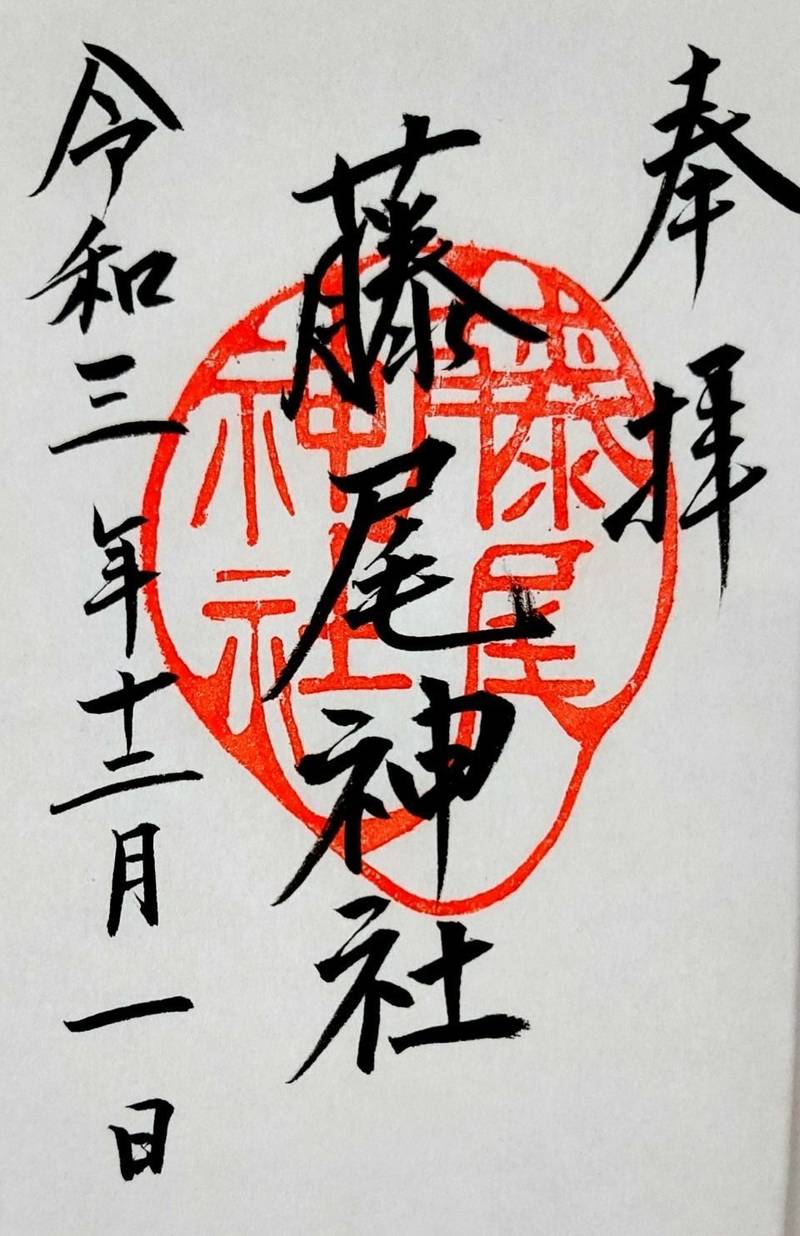 奉拝
藤尾神社
藤尾
神社
令和三年十二月一日